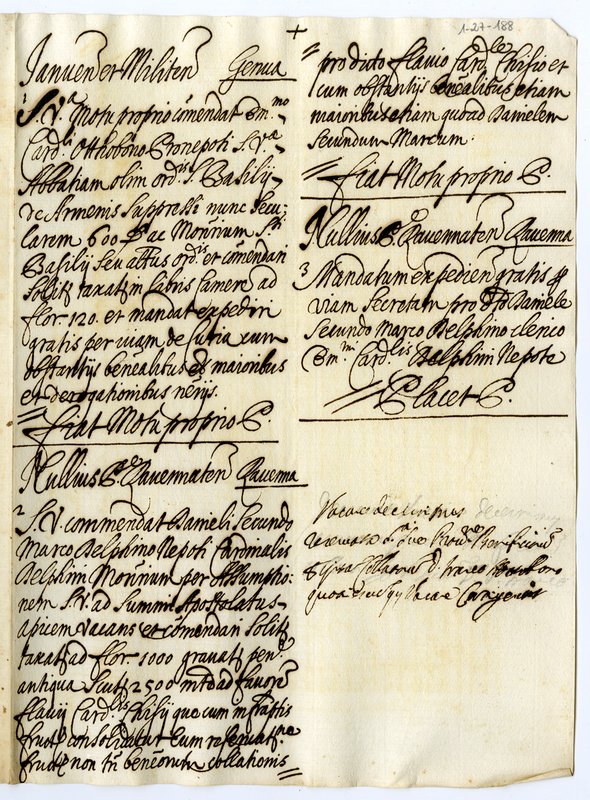 1-27-188
+
Januen et Militen Genua
1 S. V.ª Motu proprio comendat Em.mo
Card.li Otthobono Pronepoti S. V.æ
Abbatiam olim ord.is S. Basilij
de Armenis suppressi nunc secu-
larem 600 ac Monrium S.ti
Basilij seu altius ord.is et comendari
solit taxat in libris Camere ad
flor. 120. et mandat expediri
gratis per viam de Curia cum
obstantijs benealibus maioribus
et derogationibus nerijs.
= fiat Motu proprio P.
Nullius P Ravennaten Ravenna
2 S. V. commendat Danieli Secundo
Marco Delphino Nepoti Cardinalis
Delphini Monrium per Assumptio-
nem S. V. ad summi Apostolatus
apicem vacans et comendari solit
taxat ad flor. 1000 gravat pen.e
antiqua scut 2500 mta ad favore
flavij Card.lis Chisij que cum infraptis
fruct consolidatur cum reservat.ne
fruct non tn beneorum collationis =
= pro dicto flavio Card.le Chisio et
cum obstantijs benealibus etiam
maioribus etiam quoad Danielem
Secundum Marcum.
= fiat Motu proprio P.
Nullius P Ravennaten Ravenna
3 Mandatum expedien gratis p
viam Secretam pro dto Daniele
Secundo Marco Delphino clerico
Em.mi Card.lis Delphini Nepote
= Placet P.